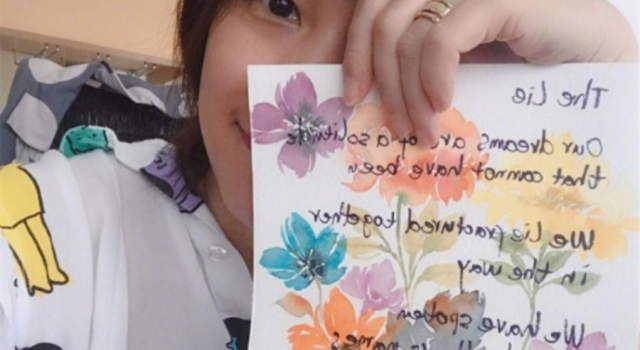 The Lie
Our dreams are of a solitude
that cannot have been
We lie fractured together
in the way
We have spoken
names